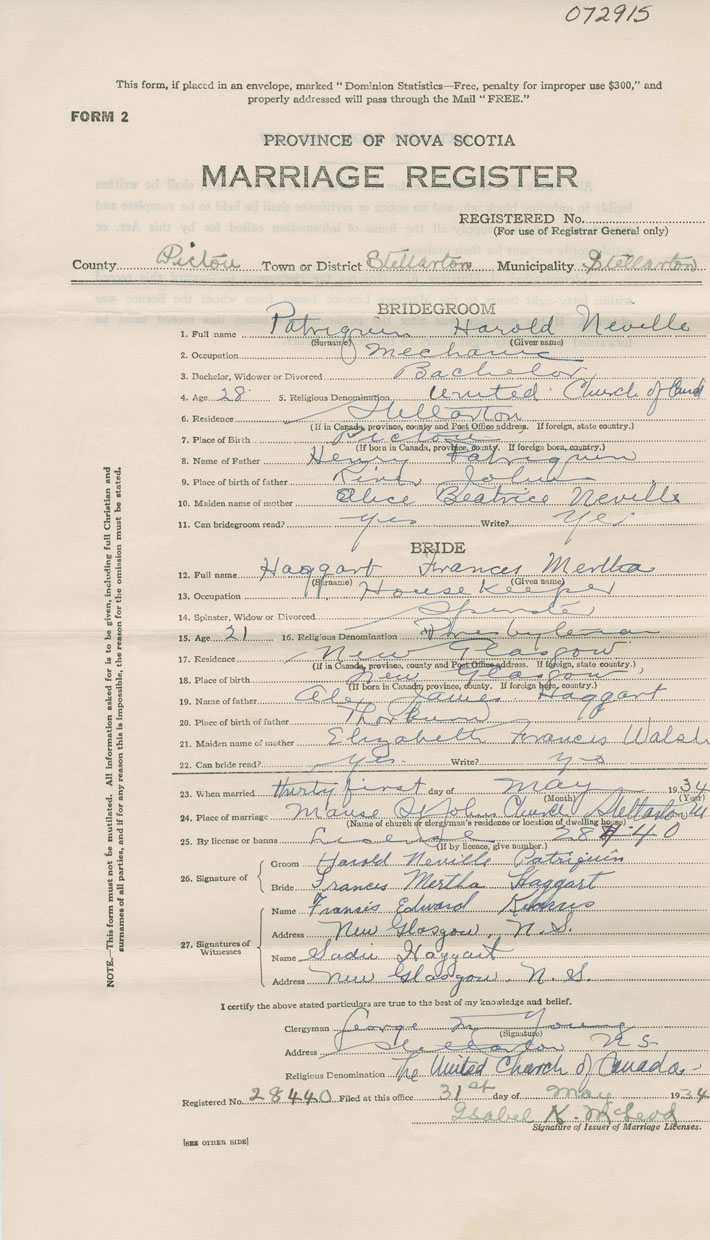 072915
This form, if placed in an envelope, marked "Dominion Statistics—Free, penalty for improper use $300," and
properly addressed will pass through the Mail "FREE."
FORM 2
PROVINCE OF NOVA SCOTIA
MARRIAGE REGISTER
REGISTERED No.
(For use of Registrar General only)
County Pictou Town or District Stellarton Municipality Stellarton
BRIDEGROOM
1. Full name Patriquin Harold Neville
(Surname) (Given name)
2. Occupation Mechanic
3. Bachelor, Widower or Divorced Bachelor
4. Age 28 5. Religious Denomination United Church of Canad
6. Residence Stellarton
(If in Canada, province, county and Post Office address. If foreign, state country.)
7. Place of Birth Pictou
(If born in Canada, province, county. If foreign born, country.)
8. Name of Father Henry Patriquin
9. Place of birth of father River John
10. Maiden name of mother Alice Beatrice Neville
11. Can bridegroom read? yes Write? Yes
BRIDE
12. Full name Haggart Frances Mertha
(Surname) (Given name)
13. Occupation House Keeper
14. Spinster, Widow or Divorced Spinster
15. Age 21 16. Religious Denomination Presbyterian
17. Residence New Glasgow
(If in Canada, province, county and Post Office address. If foreign, state country.)
18. Place of birth New Glasgow
(If born in Canada, province, county. If foreign born, country.)
19. Name of father Alex James Haggart
20. Place of birth of father Thorburn
21. Maiden name of mother Elizabeth Francis Walsh
22. Can bride read? yes Write? yes
23. When married thirty first day of May 1934
(Month) (Year)
24. Place of marriage Manse St Johns Church Stellarton NS
(Name of church or clergyman's residence or location of dwelling house)
25. By license or banns License 28440
(If by licence, give number.)
26. Signature of
Groom Harold Neville Patriquin
Bride Frances Mertha Haggart
27. Signatures of Witnesses
Name Francis Edward
Address New Glasgow, N.S.
Name Sadie Haggart
Address New Glasgow, N.S.
I certify the above stated particulars are true to the best of my knowledge and belief.
Clergyman George M Young
(Signature)
Address Stellarton N S
Religious Denomination The United Church of Canada
Registered No. 28440 Filed at this office 31st day of May 1934
Isabel K. McLeod
Signature of Issuer of Marriage Licenses.
[SEE OTHER SIDE]
NOTE.—This form must not be mutilated. All information asked for is to be given, including full Christian and
surnames of all parties, and if for any reason this is impossible, the reason for the omission must be stated.